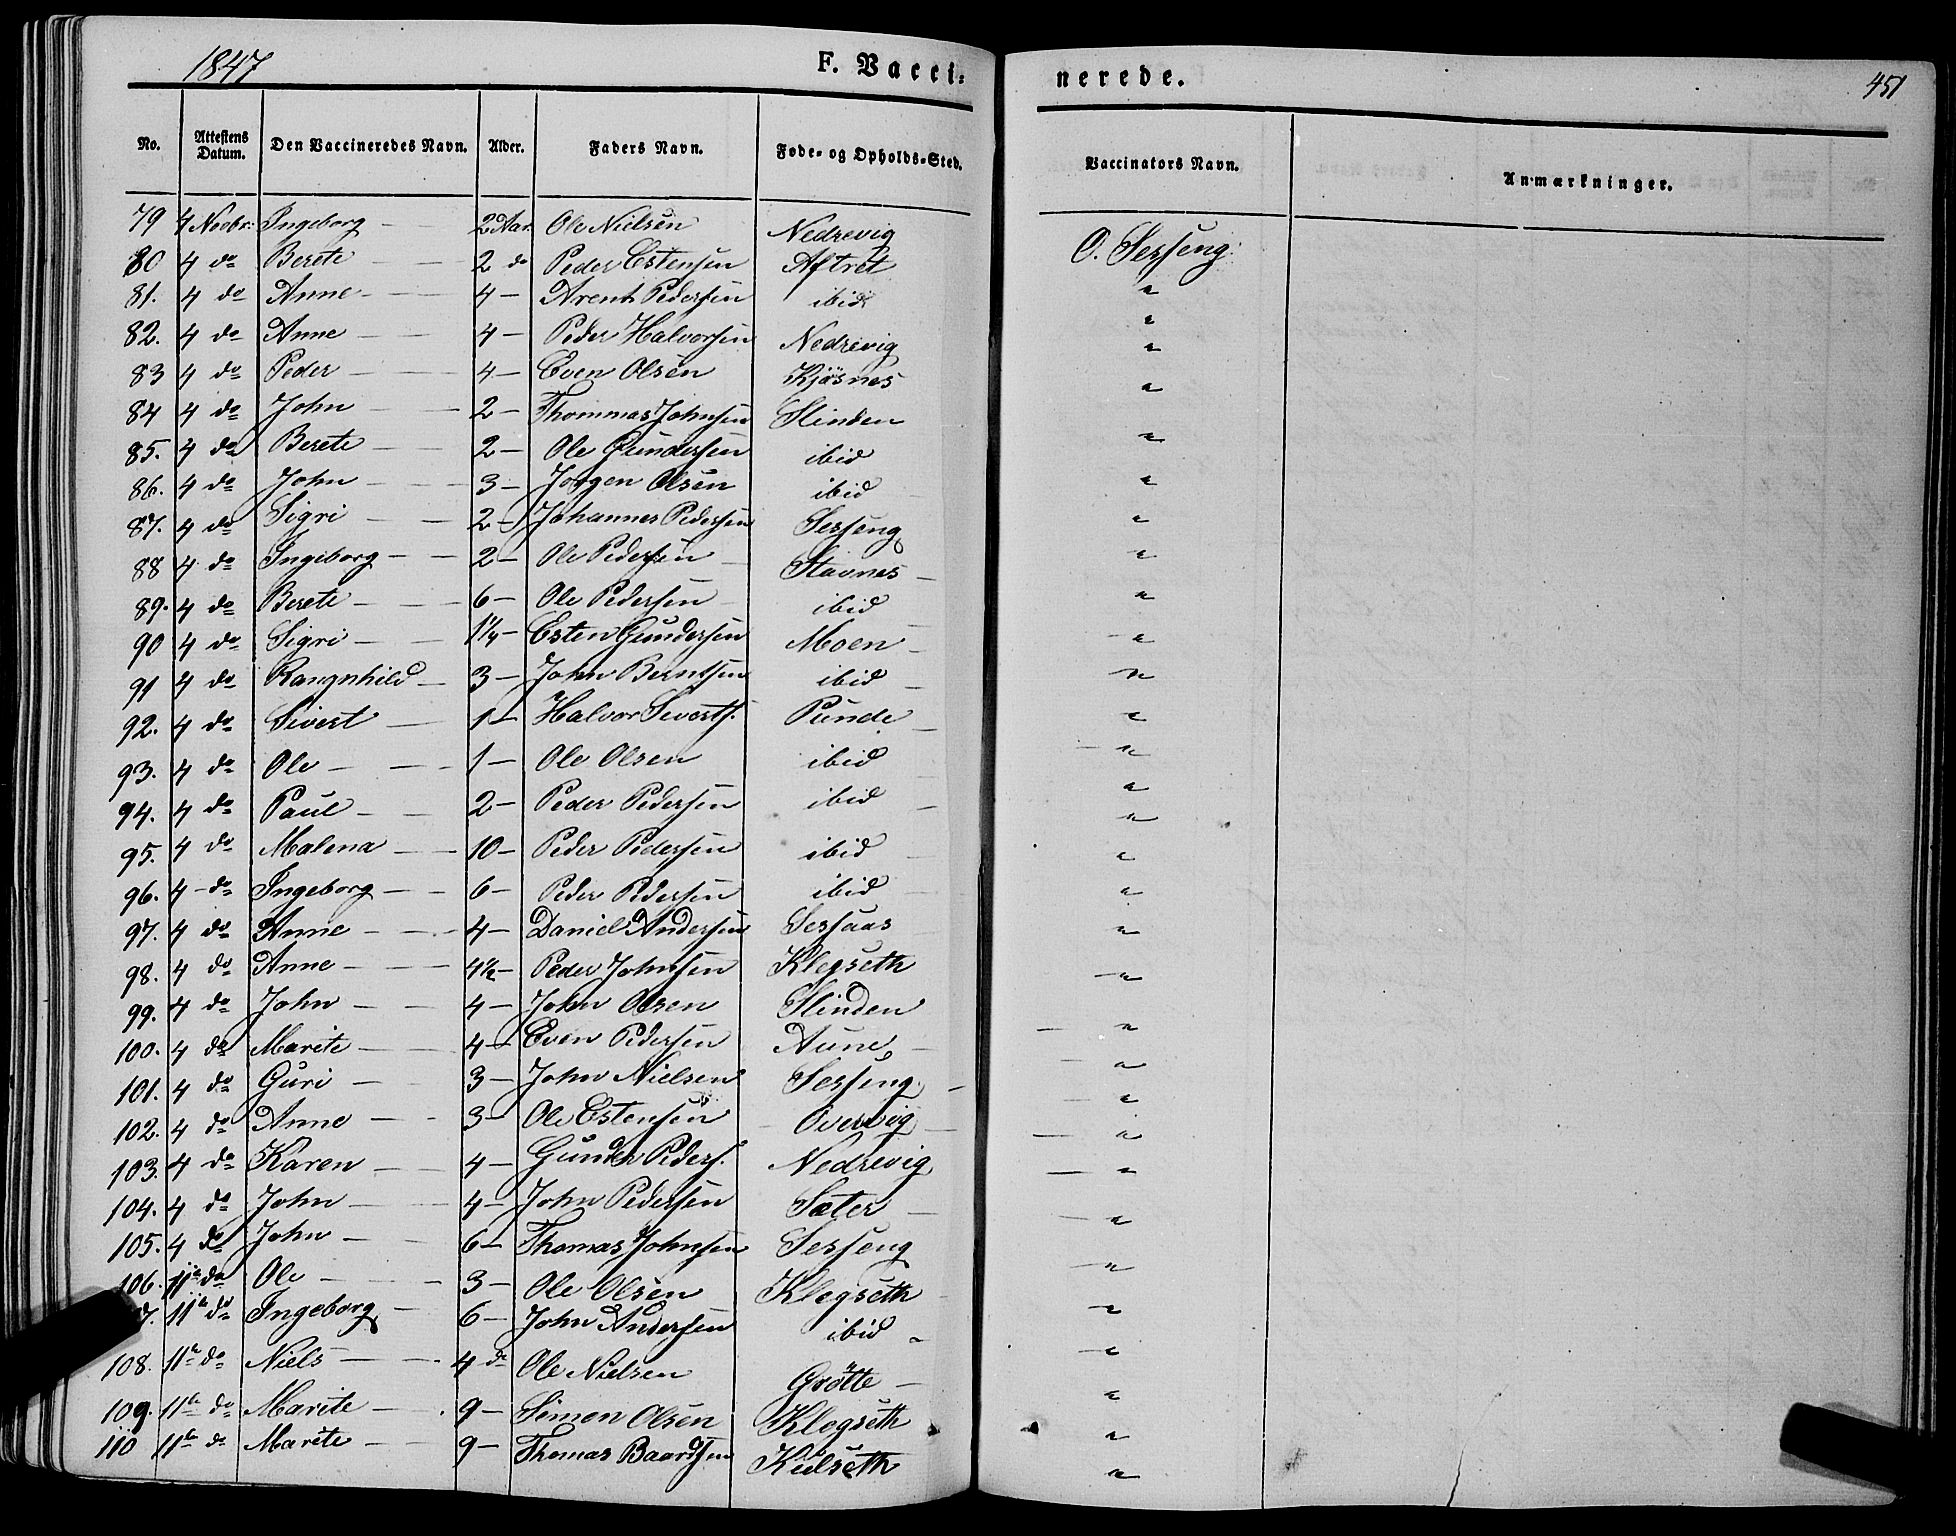 1847 F. Vacci- nerede. 451
No. Attestens Datum. Den Vaccineredes Navn. Alder. Faders Navn. Føde- og Opholds-Sted. Vaccinators Navn. Anmærkninger.
79 4 Novbr: Ingeborg — 2 Aar Ole Nielsen Nedrevig O. Serseng:
80 4 do Berete — 2 do Peder Estensen Aftret "
81. 4 do Anne — 4 — Arent Pedersen ibid "
82. 4 do Anne — 4 — Peder Halvorsen Nedrevig "
83 4 do Peder — 4 — Even Olsen Kjösnes "
84 4 do John — 2 — Thommas Johnsen Slinden "
85. 4 do Berete — 2 — Ole Gundersen ibid "
86. 4 do John — 3 — Jorgen Olsen ibid "
87. 4 do Sigri — 2 — Johannes Pedersen Serseng "
88 4 do Ingeborg — 2 — Ole Pedersen Stavnes "
89. 4 do Berete — 6 — Ole Pedersen ibid "
90 4 do Sigri — 1 1/4 — Esten Gundersen Moen "
91 4 do Rangnhild — 3 — John Berntsen ibid "
92. 4 do Sivert — 1 — Halvor Siverts. Punde "
93. 4 do Ole — 1 — Ole Olsen ibid "
94. 4 do Paul — 2 — Peder Pedersen ibid "
95. 4 do Malena — 10 — Peder Pedersen ibid "
96. 4 do Ingeborg — 6 — Peder Pedersen ibid "
97. 4 do Anne — 4 — Daniel Andersen Sersaas "
98. 4 do Anne — 4 1/2 — Peder Johnsen Klegseth "
99. 4 do John — 4 — John Olsen Slinden "
100. 4 do Marite — 4 — Even Pedersen Aune "
101. 4 do Guri — 3 — John Nielsen Serseng "
102. 4 do Anne — 3 — Ole Estensen Overvig "
103. 4 do Karen — 4 — Gunder Peders. Nedrevig "
104. 4 do John — 4 — John Pedersen Sæter "
105. 4 do John — 6 — Thomas Johnsen Serseng "
106. 11te do Ole — 3 — Ole Olsen Klegseth "
7. 11te do Ingeborg — 6 — John Andersen ibid "
108. 11te do Niels — 4 do Ole Nielsen Grötte "
109. 11te do Marite — 9 — Simon Olsen Klegseth "
110 11te do Marite — 9 — Thomas Baardsen Kulseth "